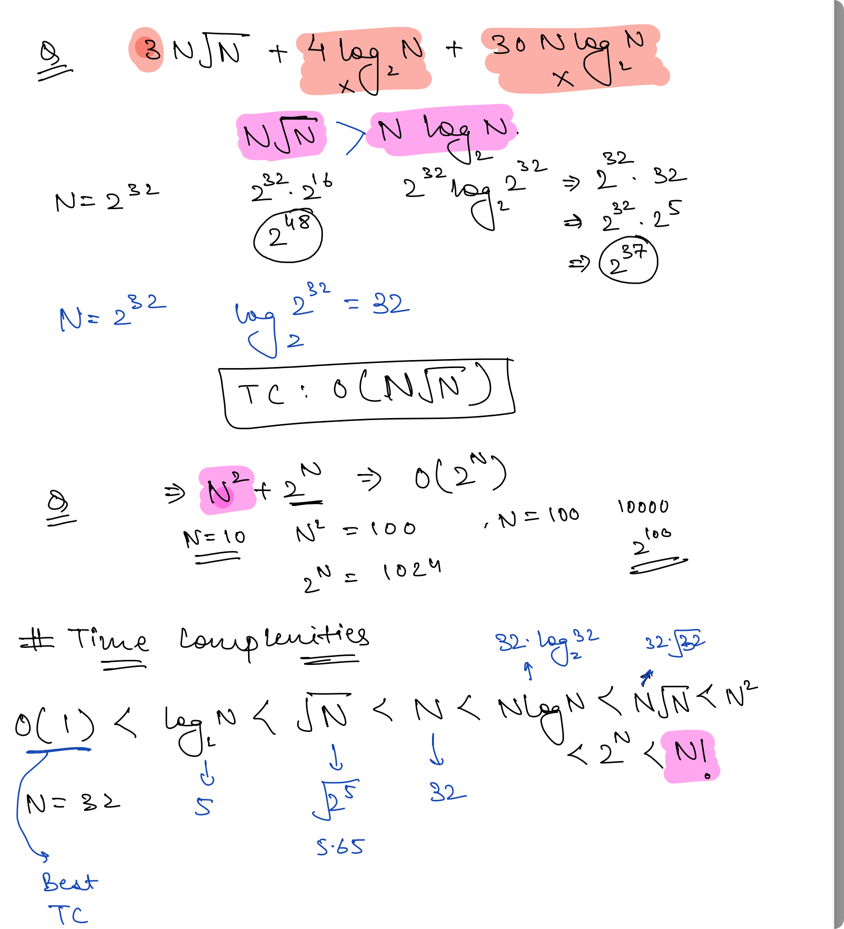 Q 3 N√N + 4 log₂ N + 30 N log₂ N
x x
N√N > N log₂ N.
N = 2³² 2³² · 2¹⁶ 2³² log₂ 2³² ⇒ 2³² · 32
2⁴⁸ ⇒ 2³² · 2⁵
⇒ 2³⁷
N = 2³² log₂ 2³² = 32
TC : O(N√N)
Q ⇒ N² + 2ᴺ ⇒ O(2ᴺ)
N = 10 N² = 100 , N = 100 10000
2ᴺ = 1024 2¹⁰⁰
# Time Complexities 32·log₂32 32·√32
O(1) < log₂N < √N < N < N log N < N√N < N²
< 2ᴺ < N!
N = 32 5 √2⁵ 32
5.65
Best
TC